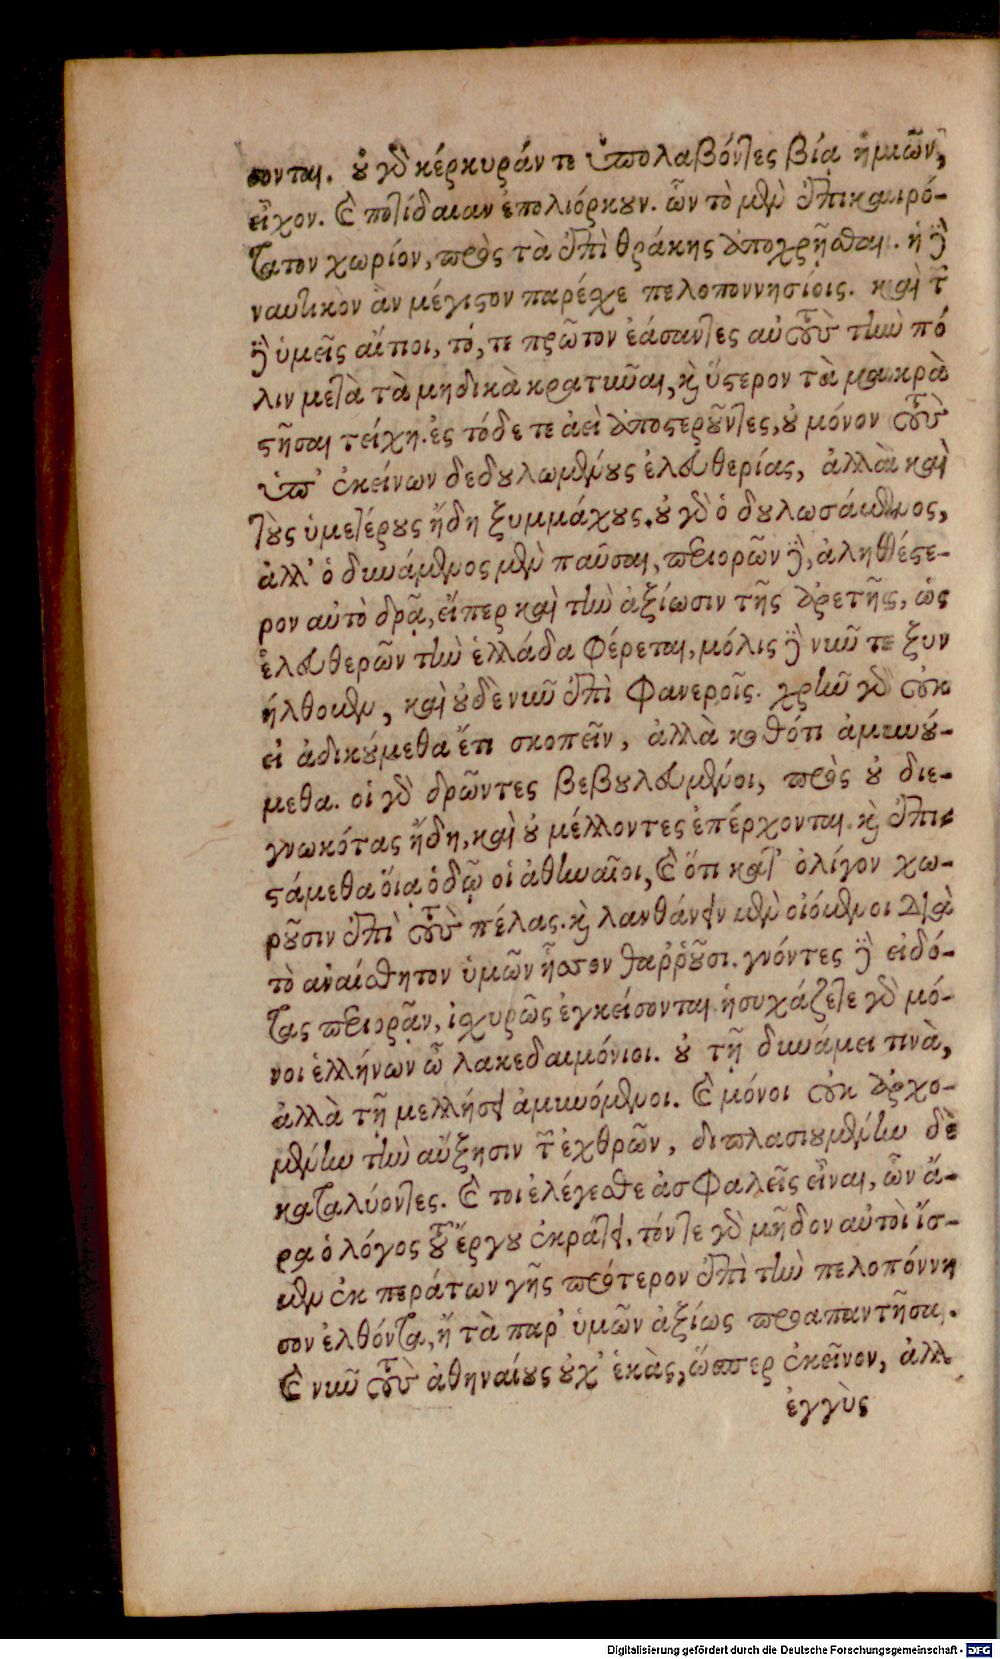 σονται. οὐ γὰρ κέρκυράν τε ὑπολαβόντες βίᾳ ἡμῶν,
εἶχον. καὶ ποτίδαιαν ἐπολιόρκουν. ὧν τὸ μὲν ἐπικαιρό-
τατον χωρίον, πρὸς τὰ ἐπὶ θράκης ἀποχρῆσθαι. ἡ δὲ
ναυτικὸν ἂν μέγιστον παρέσχε πελοποννησίοις. καὶ τῶν
δὲ ὑμεῖς αἴτιοι, τό, τε πρῶτον ἐάσαντες αὐτοὺς τὴν πό
λιν μετὰ τὰ μηδικὰ κρατῦναι, καὶ ὕστερον τὰ μακρὰ
στῆσαι τείχη. ἐς τόδε τε ἀεὶ ἀποστεροῦντες, οὐ μόνον τοὺς
ὑπ' ἐκείνων δεδουλωμένους ἐλευθερίας, ἀλλὰ καὶ
τοὺς ὑμετέρους ἤδη ξυμμάχους. οὐ γὰρ ὁ δουλωσάμενος,
ἀλλ' ὁ δυνάμενος μὲν παῦσαι, περιορῶν δὲ, ἀληθέστε-
ρον αὐτὸ δρᾷ, εἴπερ καὶ τὴν ἀξίωσιν τῆς ἀρετῆς, ὡς
ἐλευθερῶν τὴν ἑλλάδα φέρεται, μόλις δὲ νῦν τε ξυν
ήλθομεν, καὶ οὐδὲ νῦν ἐπὶ φανεροῖς. χρῆν γὰρ οὐκ
εἰ ἀδικούμεθα ἔτι σκοπεῖν, ἀλλὰ καθότι ἀμυνού-
μεθα. οἱ γὰρ δρῶντες βεβουλευμένοι, πρὸς οὐ διε-
γνωκότας ἤδη, καὶ οὐ μέλλοντες ἐπέρχονται. καὶ ἐπι-
στάμεθα οἵᾳ ὁδῷ οἱ ἀθηναῖοι, καὶ ὅτι κατ' ὀλίγον χω-
ροῦσιν ἐπὶ τοὺς πέλας. καὶ λανθάνειν μὲν οἰόμενοι διὰ
τὸ ἀναίσθητον ὑμῶν ἧσσον θαῤῥοῦσι. γνόντες δὲ εἰδό-
τας περιορᾷν, ἰσχυρῶς ἐγκείσονται. ἡσυχάζετε γὰρ μό-
νοι ἑλλήνων ὦ λακεδαιμόνιοι. οὐ τῇ δυνάμει τινὰ,
ἀλλὰ τῇ μελλήσει ἀμυνόμενοι. καὶ μόνοι οὐκ ἀρχο-
μένην τὴν αὔξησιν τῶν ἐχθρῶν, διπλασιουμένην δὲ
καταλύοντες. καὶ τοι ἐλέγεσθε ἀσφαλεῖς εἶναι, ὧν ἄ-
ρα ὁ λόγος τοῦ ἔργου ἐκράτει. τόν τε γὰρ μῆδον αὐτοὶ ἴσ-
μεν ἐκ περάτων γῆς πρότερον ἐπὶ τὴν πελοπόννη
σον ἐλθόντα, ἢ τὰ παρ' ὑμῶν ἀξίως προαπαντῆσαι.
καὶ νῦν τοὺς ἀθηναίους οὐχ' ἑκὰς, ὥσπερ ἐκεῖνον, ἀλλ
ἐγγὺς
Digitalisierung gefördert durch die Deutsche Forschungsgemeinschaft - DFG